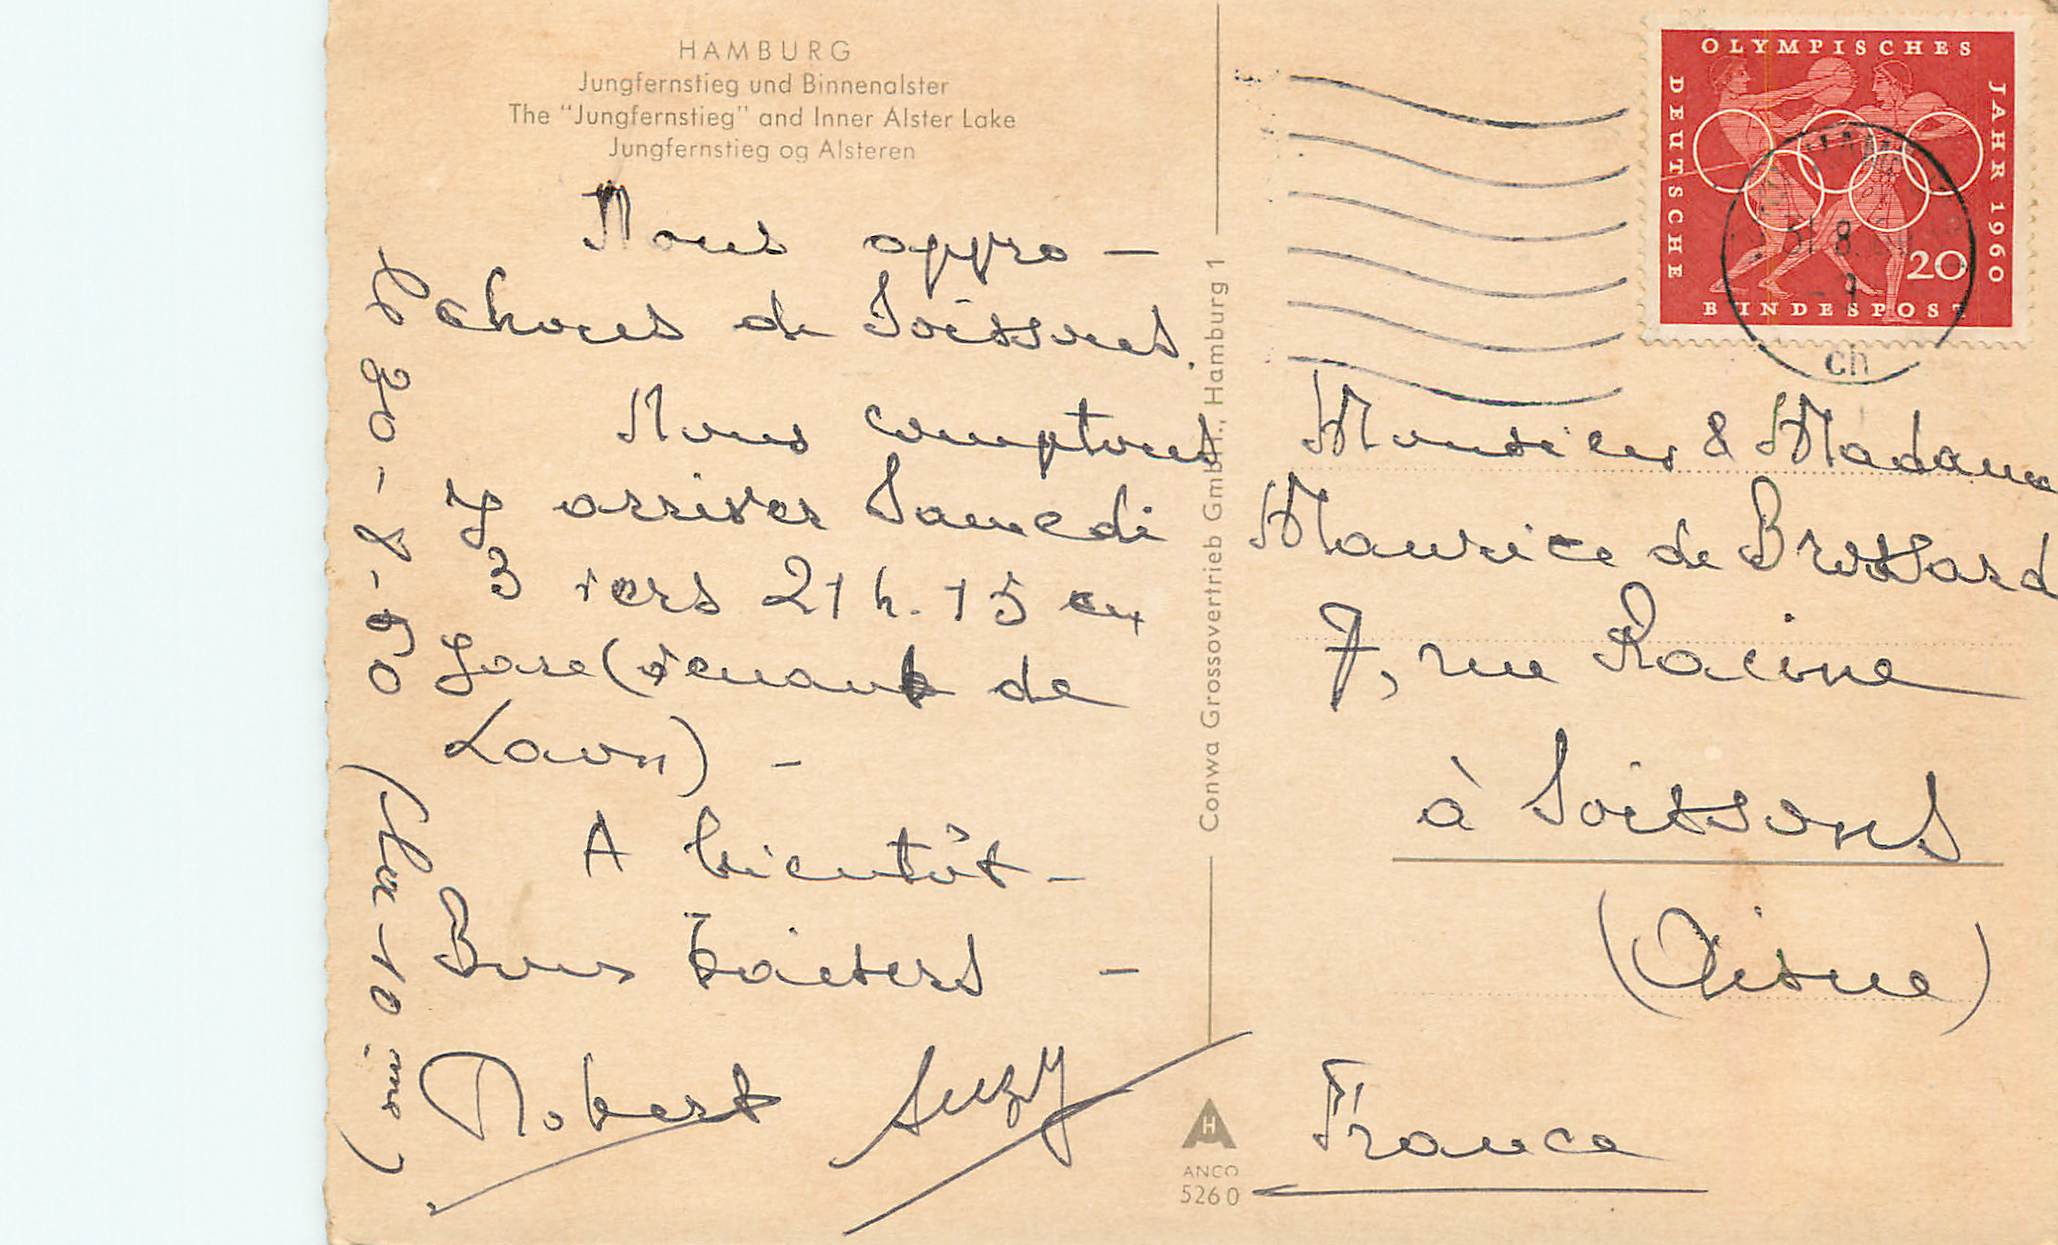 HAMBURG
Jungfernstieg und Binnenalster
The "Jungfernstieg" and Inner Alster Lake
Jungfernstieg og Alsteren
Nous appro-
chons de Soissons.
Nous comptons
y arriver Samedi
3 vers 21 h. 15 en
gare (venant de
Laon) -
A bientôt -
Bons baisers -
Robert Suzy
Le 30-8-60
Conwa Grossovertrieb GmbH., Hamburg 1
ANCO
5260
OLYMPISCHES
JAHR 1960
DEUTSCHE
BUNDESPOST
20
31.8.
ch
Monsieur & Madame
Maurice de Brossard
7, rue Racine
à Soissons
(Aisne)
France